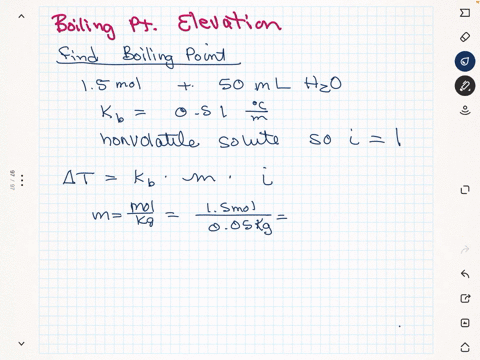 Boiling Pt. Elevation
Find Boiling Point
1.5 mol + 50 mL H2O
Kb = 0.51 °C/m
nonvolatile solute so i = 1
ΔT = Kb · m · i
m = mol/kg = 1.5mol/0.05kg =